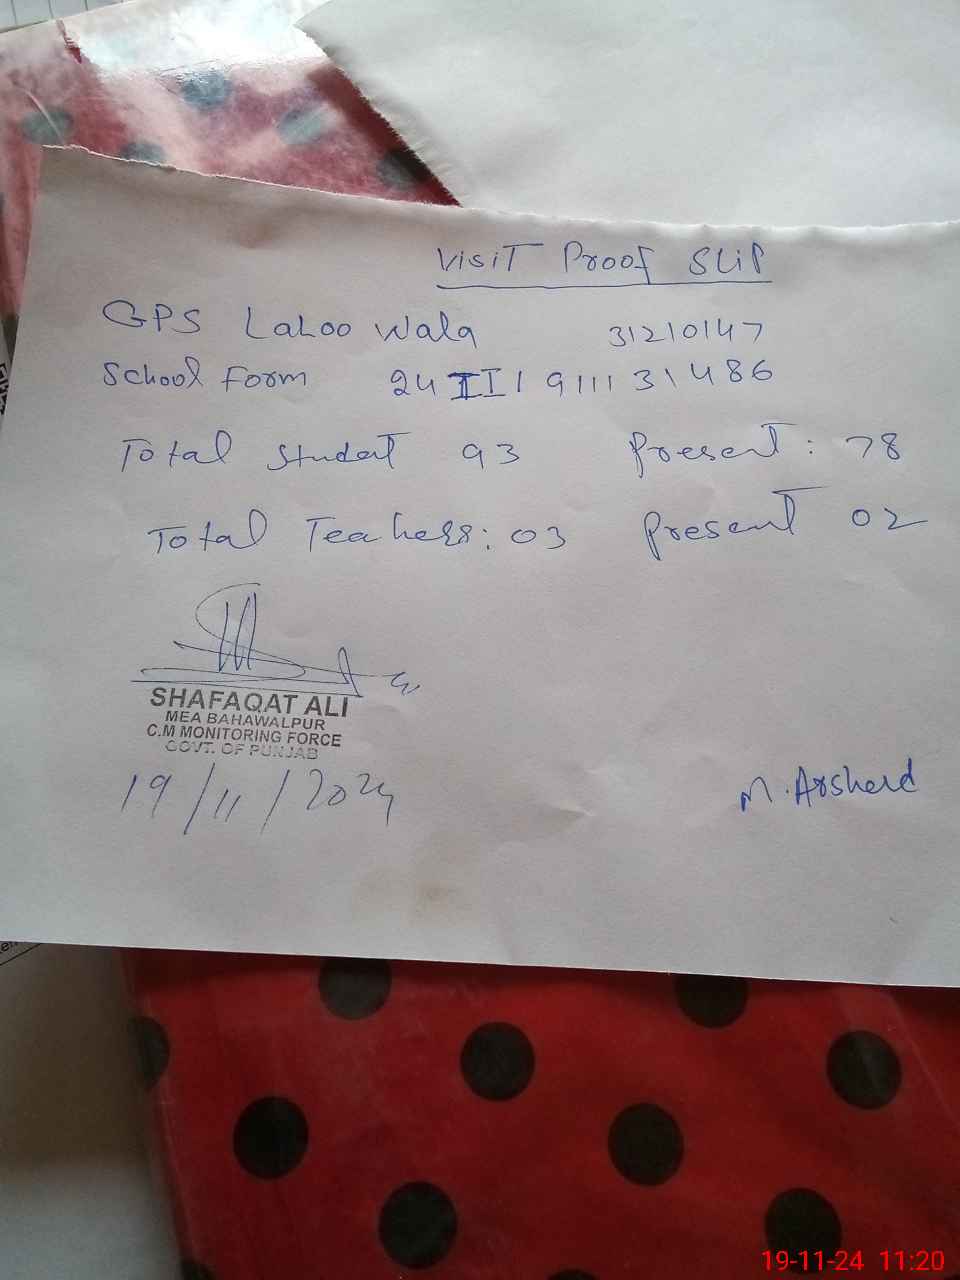 Visit Proof Slip
GPS Lahoo Wala 31210147
School Form 24 III 9111 31486
Total Student 93 Present: 78
Total Teachers: 03 Present 02
SHAFAQAT ALI
MEA BAHAWALPUR
C.M MONITORING FORCE
GOVT. OF PUNJAB
19/11/2024
M. Arshad
19-11-24 11:20